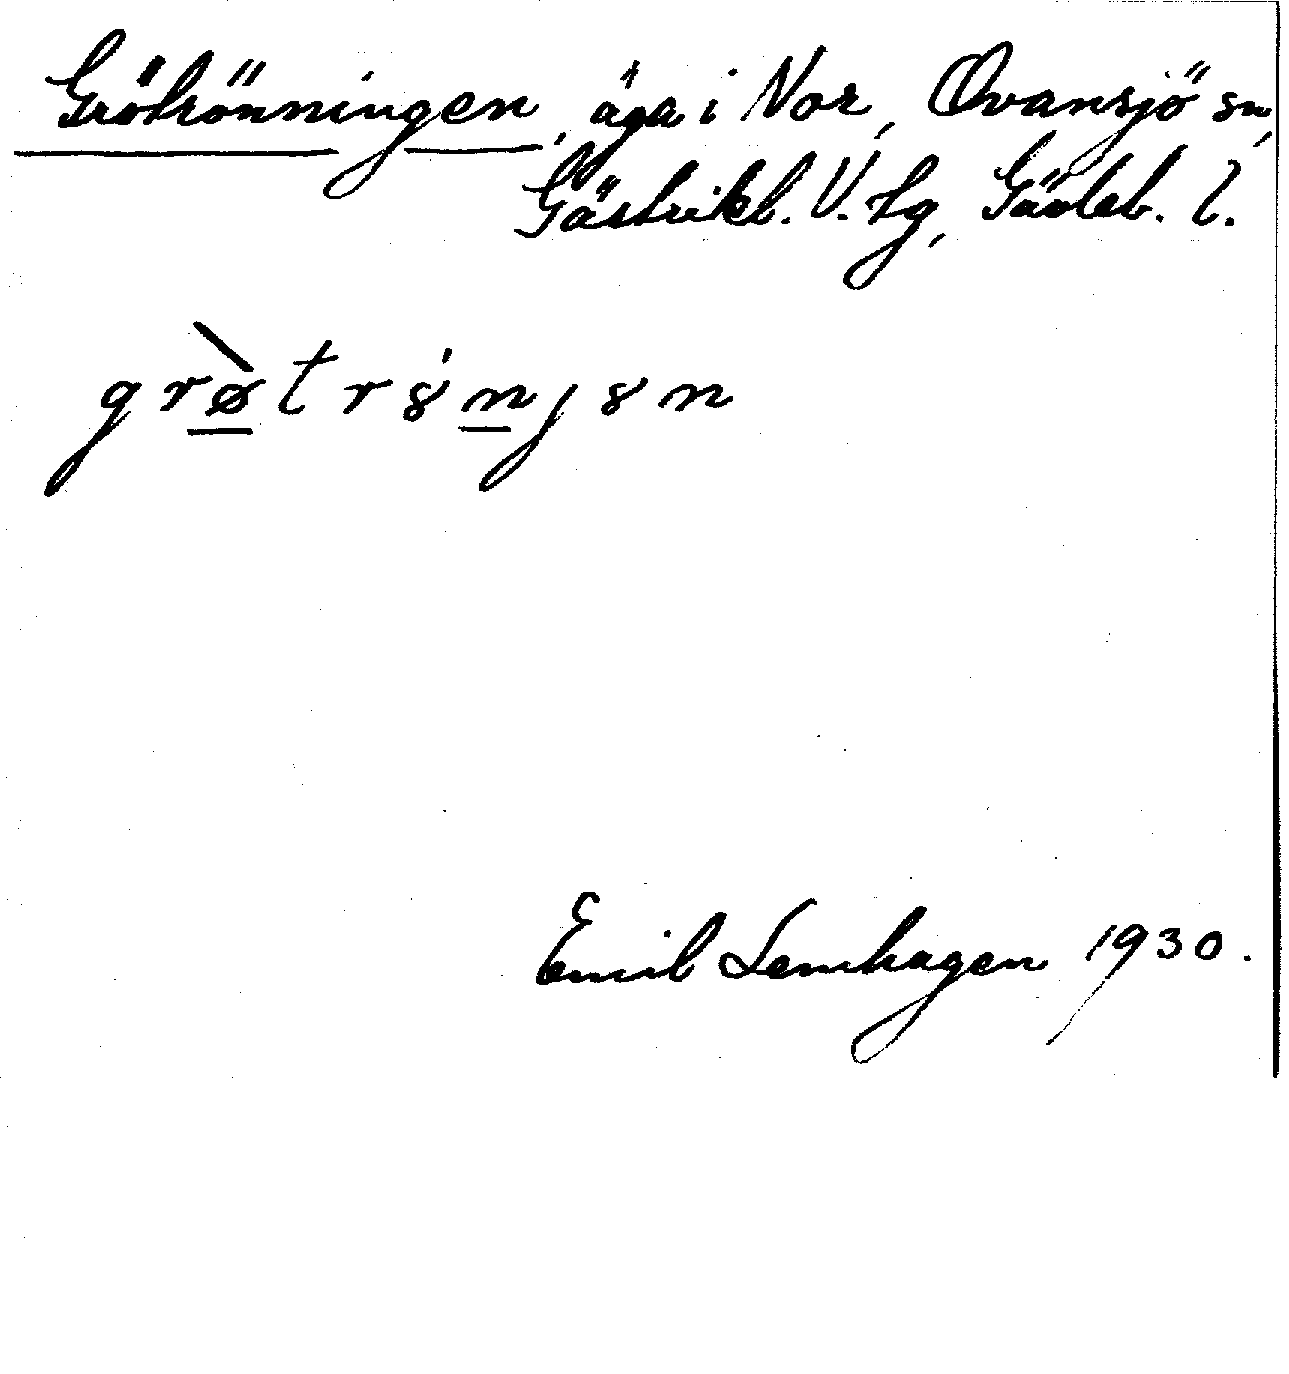 Grötrönningen, äga i Nor, Ovansjö sn,
Gästrikl. V. tg, Gävleb. l.
grø̀trȣ́njȣn
Emil Lemhagen 1930.